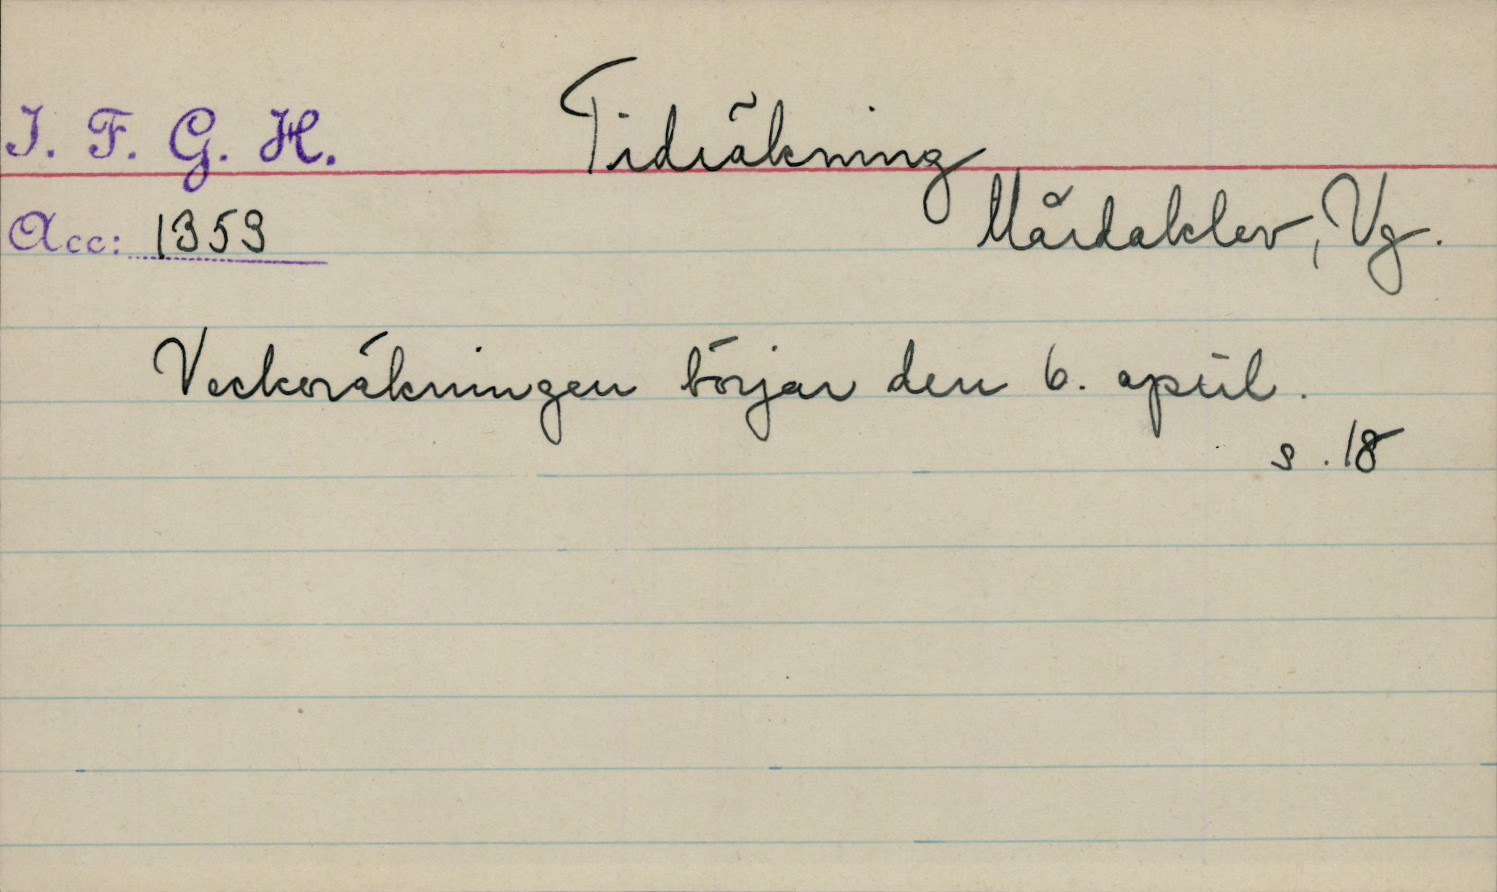 I. F. G. H. Tidräkning
Acc: 1353 Mårdaklev, Vg.
Veckoräkningen börjar den 6. april.
s. 18